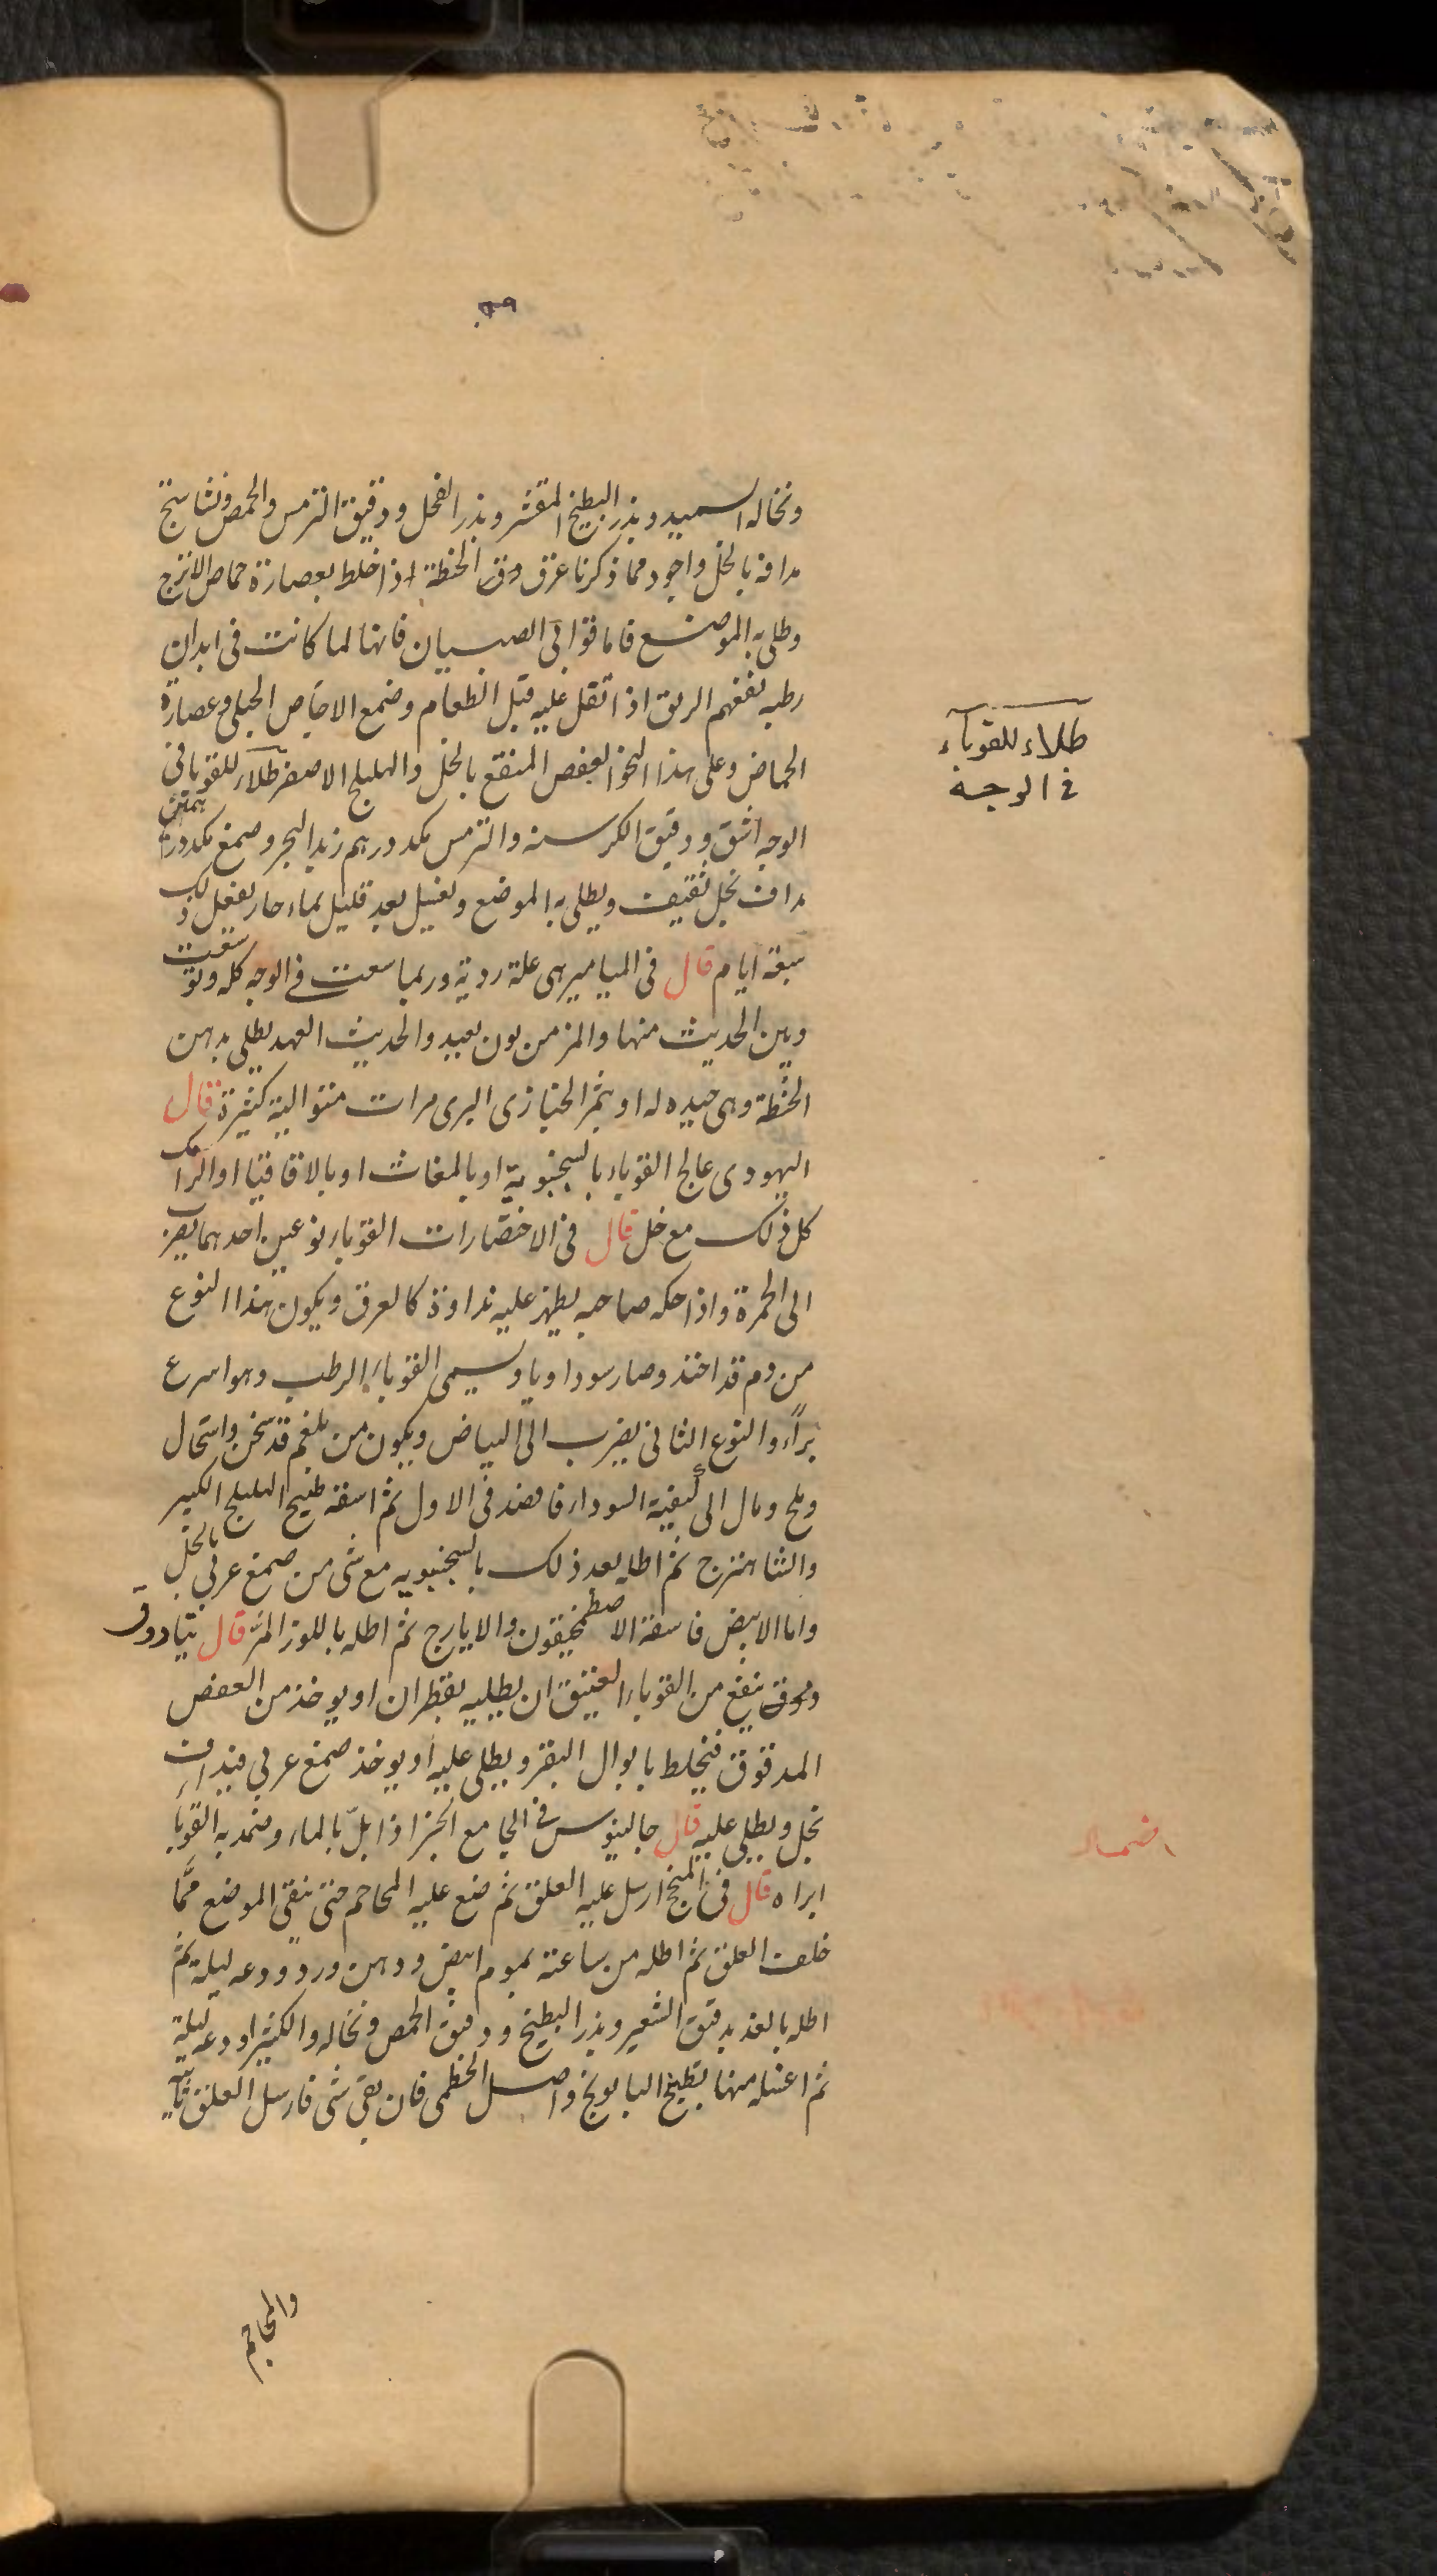 ونخاله السميد وبذر البطيخ المقشر وبذر الفجل ودقيق الترمس والحمص ونشاستج
مدافه بالخل واجود مما ذكرنا عرق دق الحنطة اذا خلط بعصارة حماض الاترج
وطلى به الموضع فاما قوابى الصبيان فانها لما كانت فى ابدان
رطبه نفعهم الريق اذا تفل عليه قبل الطعام وضمع الاجاص الجبلى وعصارة
الحماض وعلى هذا النحو العفص المنقع بالخل والهليلج الاصفر طلاء للقوبا فى
الوجه اشق ودقيق الكرسنه والترمس مكد درهم زبد البحر وصمغ مكد درهمين
مداف بخل ثقيف ويطلى به الموضع ويغسل بعد قليل بماء حار يفعل ذلك
سبعة ايام قال فى الميامير هى علة ردية وربما سعت فى الوجه كله وتوسعت
وبين الحديث منها والمزمن بون بعيد والحديث العهد يطلى بدهن
الحنطة وهى جيده له او بثمر الخبازى البرى مرات متوالية كثيرة قال
اليهودى عالج القوباء بالسجنبوية او بالمغاث او بالاقاقيا او الرامك
كل ذلك مع خل قال فى الاختصارات القوباء نوعين احدهما يضرب
الى الحمرة واذا حكه صاحبه يظهر عليه نداوة كالعرق ويكون هذا النوع
من دم قد اختد وصار سوداويا ويسمى القوباء الرطب وهو اسرع
براً والنوع الثانى يضرب الى البياض ويكون من بلغم قد سخن واستحال
وملح ومال الى كيفية السوداء فافصد فى الاول ثم اسقه طبيخ الهليلج الكبير
والشاهترج ثم اطله بعد ذلك بالسجنبويه مع شى من صمغ عربى بالخل
واما الابيض فاسقه الاصطمخيقون والايارج ثم اطله باللوز المر قال تيادوق
ودوق ينفع من القوباء العتيق ان يطليه بقطران او يوخذ من العفص
المدقوق فيخلط بابوال البقر ويطلى عليه او يوخذ صمغ عربى فيداف
بخل ويطلى عليه قال جالينوس فى الجامع الخبز اذا بل بالماء وضمد به القوباء
ابراه قال فى المنجح ارسل عليه العلق ثم ضع عليه المحاجم حتى ينقى الموضع مما
خلف العلق ثم اطله من ساعته بموم ابيض ودهن ورد ودعه ليلة ثم
اطله بالغد بدقيق الشعير وبذر البطيخ ودقيق الحمص ونخاله والكثيرا ودعه ليلة
ثم اغسله منها بطبيخ البابونج واصل الخطمى فان بقى شى فارسل العلق ثانية
والمحاجم
طلاء للقوباء
فى الوجه